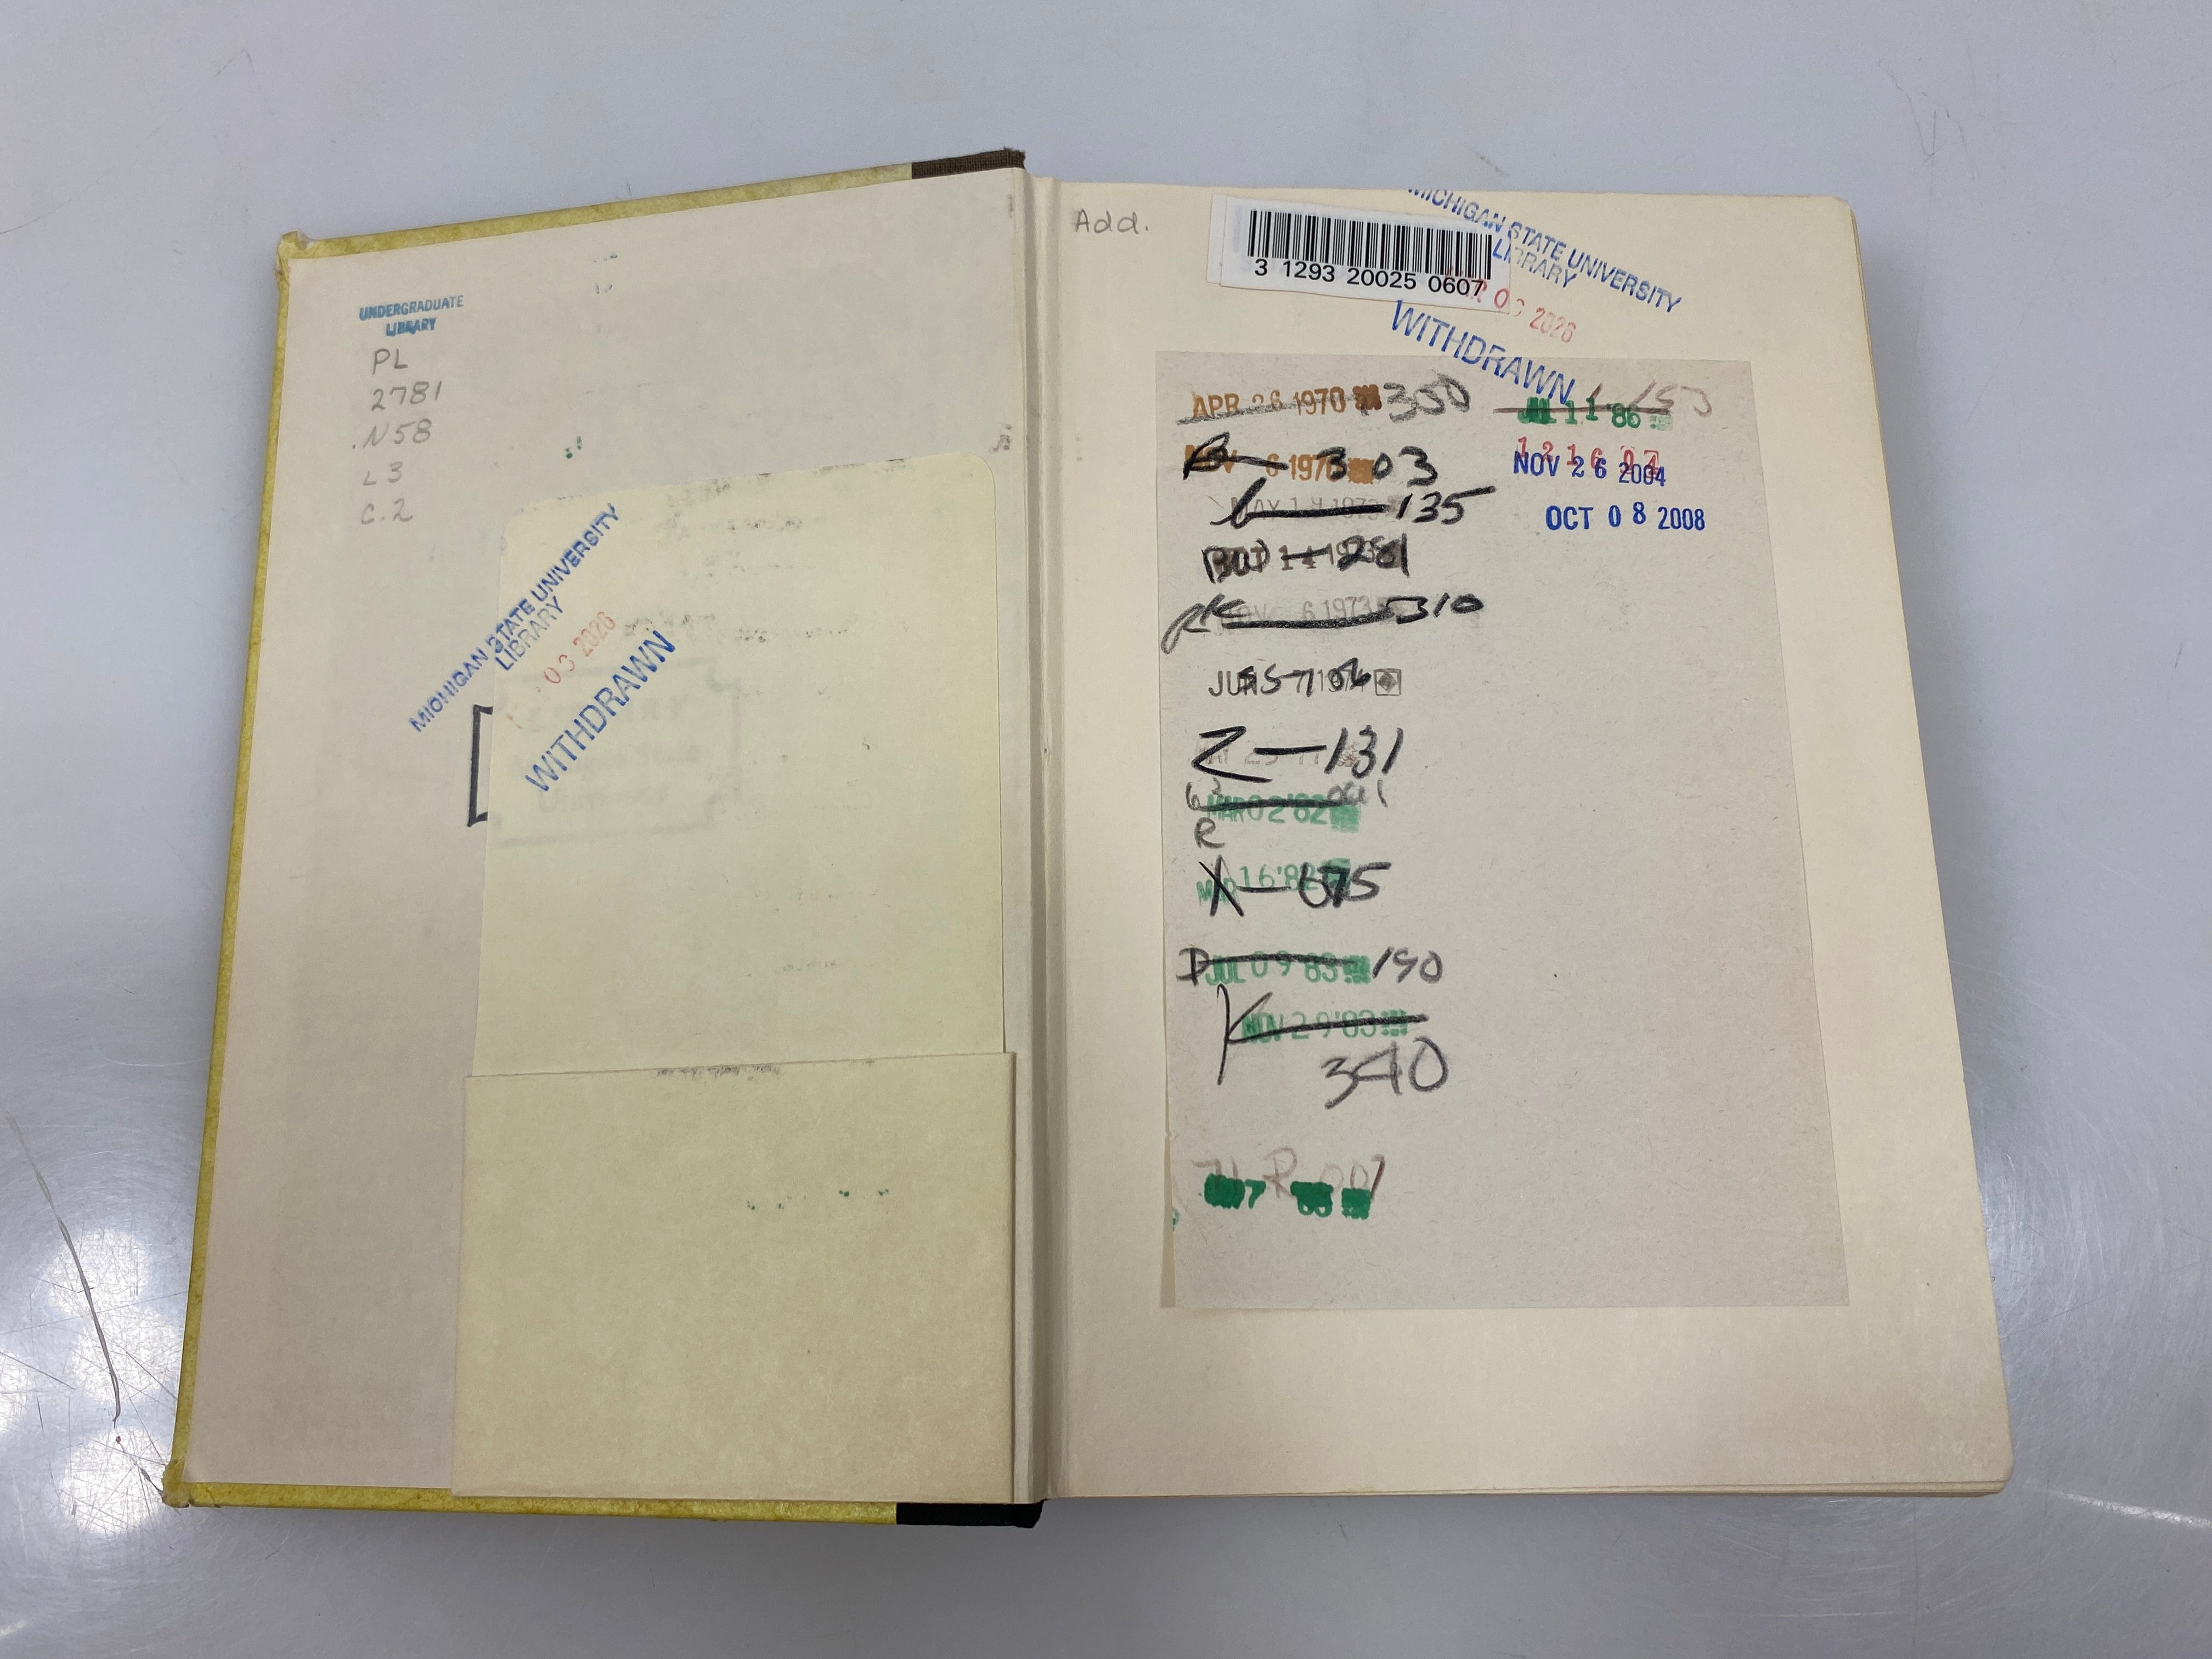 UNDERGRADUATE
LIBRARY
PL
2781
.N58
L3
C.2
MICHIGAN STATE UNIVERSITY
LIBRARY
03 2026
WITHDRAWN
Add.
3 1293 20025 0607
MICHIGAN STATE UNIVERSITY
LIBRARY
2026
WITHDRAWN
APR 26 1970 350
NOV 6 197 B 303
135
281
NOV 6 1973 310
JUN
Z 131
MAR 02 '82
R
MAR 16 '82 X
D JUL 09 '83 190
K NOV 29 '83
340
R 001
JUL 11 '86
NOV 26 2004
OCT 08 2008